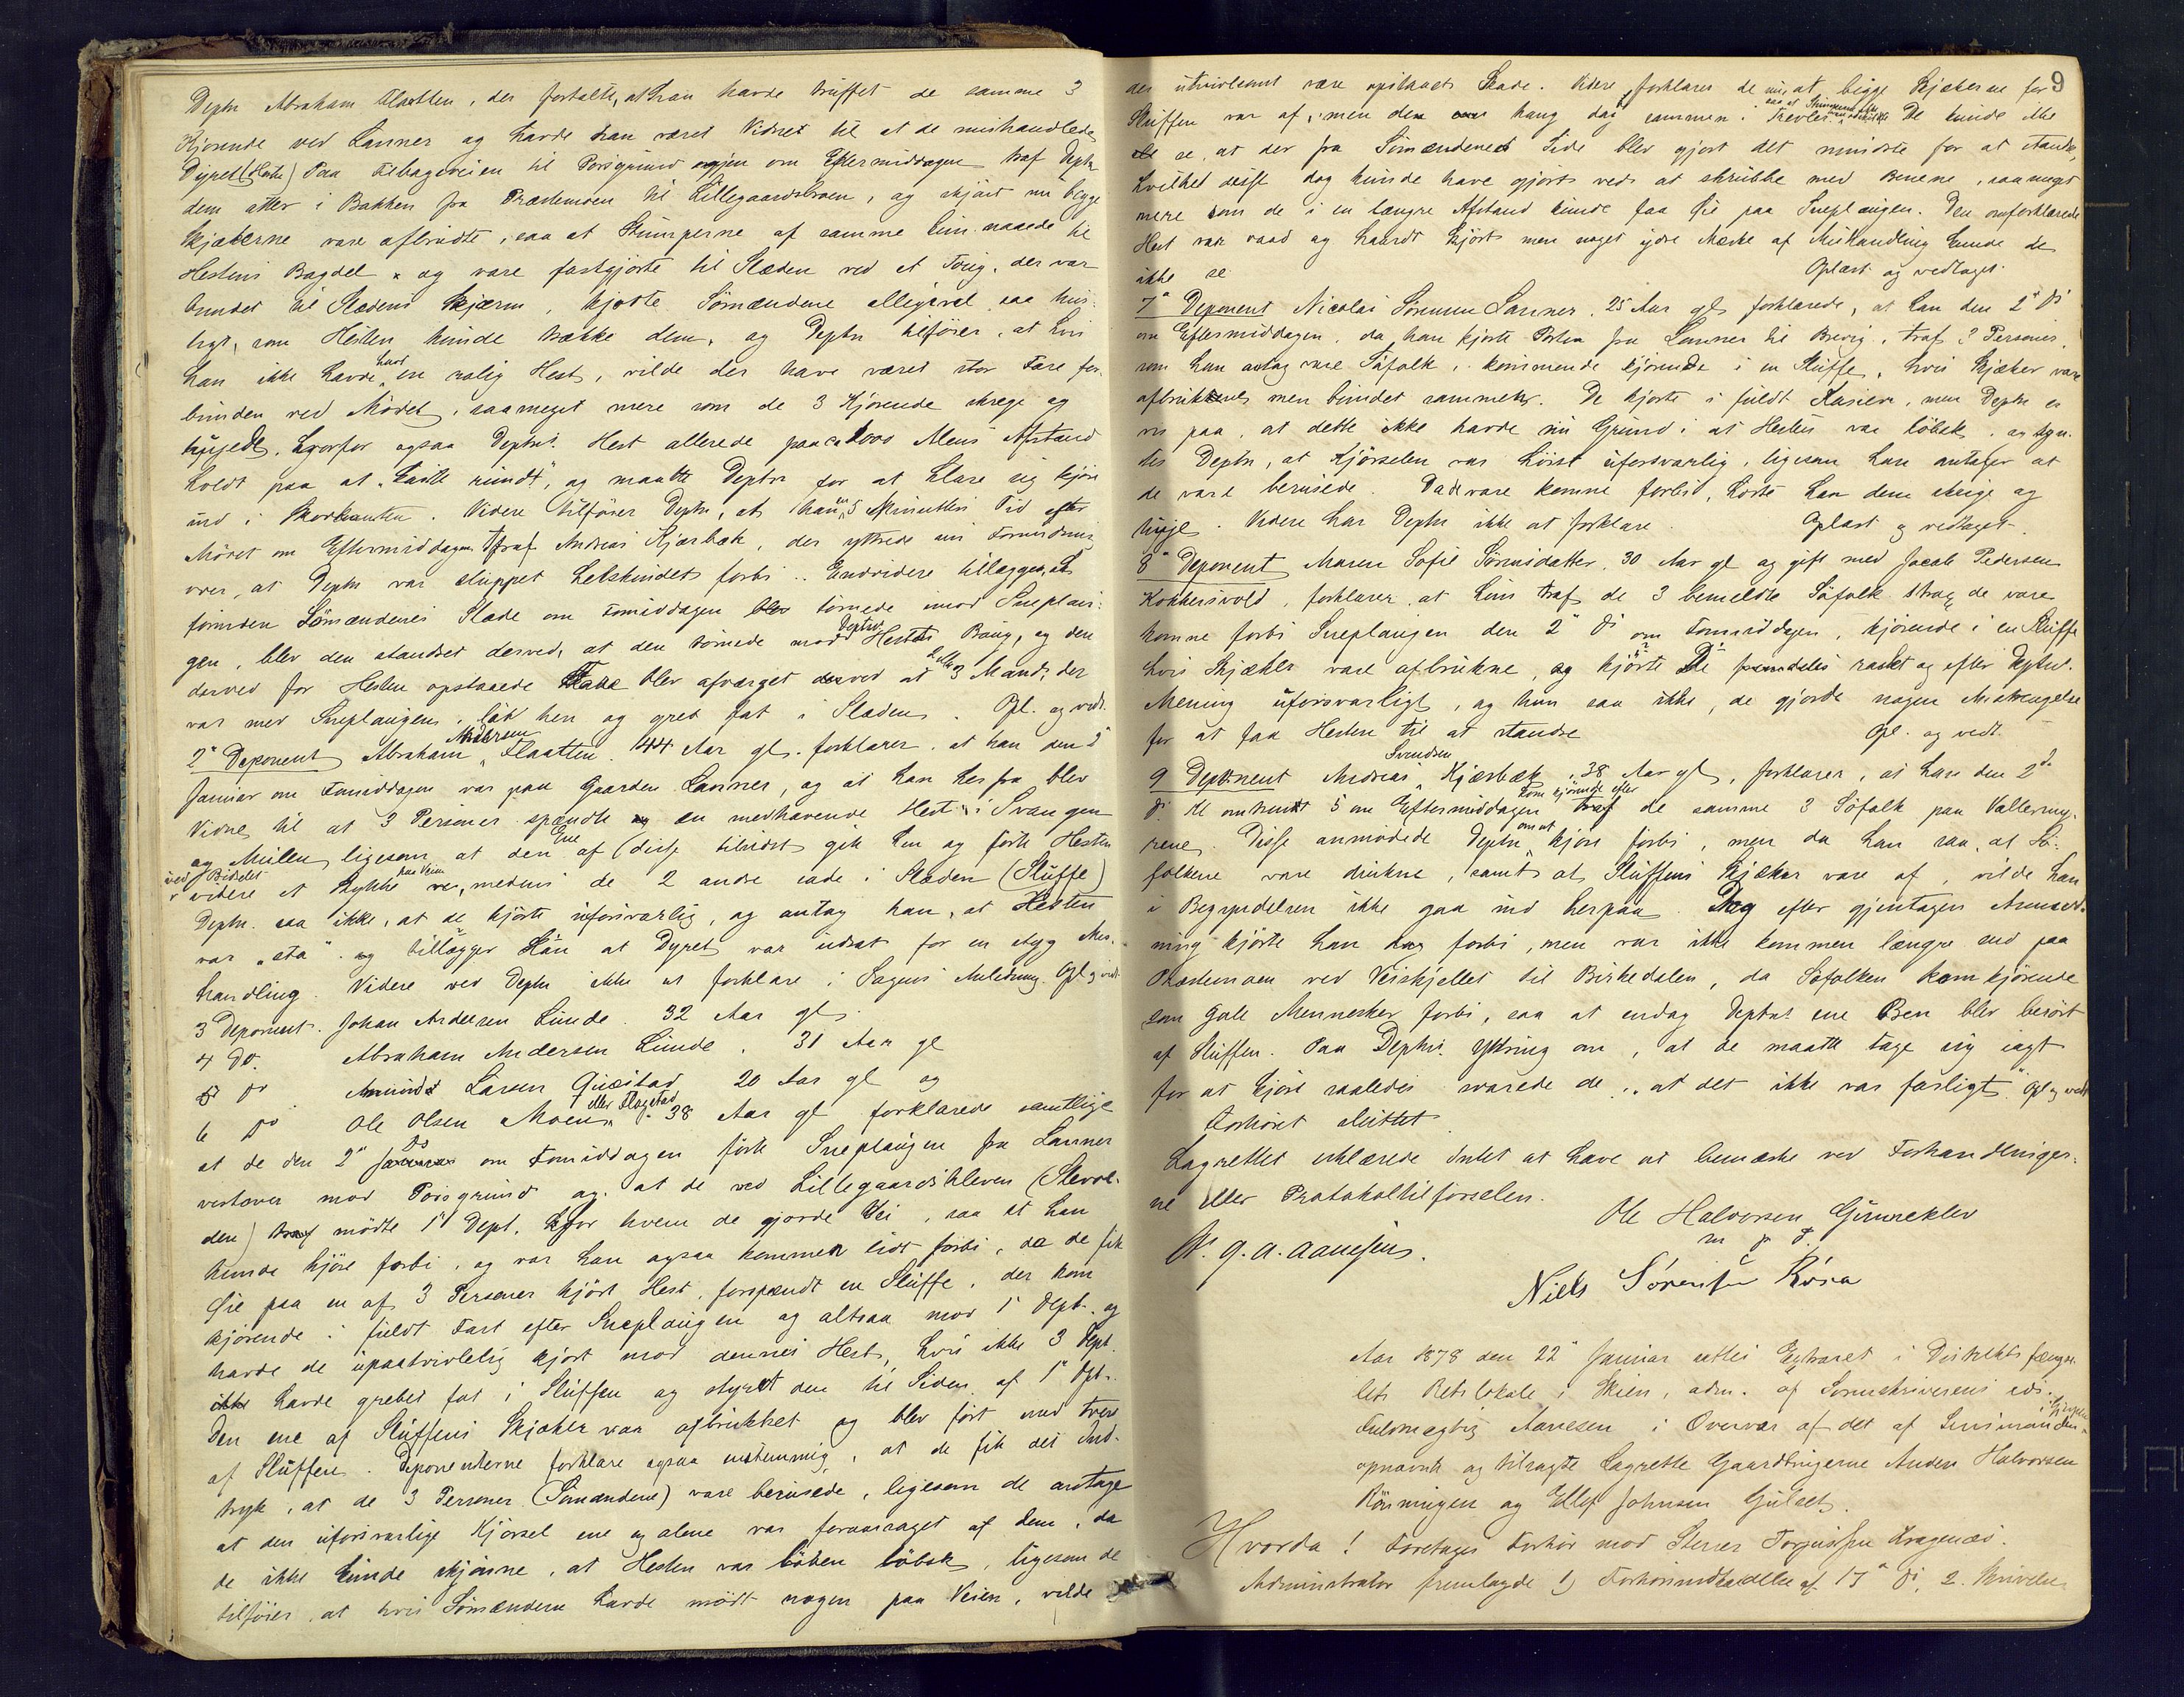 Deptn Abraham Flaatten, der fortalte, at han havde truffet de samme 3
Kjørende ved Lanner og havde han været Vidnet til at de mishandlede
Dyret (Hesten) Paa Tilbageveien til Porsgrund igjen om Eftermiddagen traf Deptn
dem atter i Bakken fra Præstemoen til Lillegaardsbroen, og skjønt nu begge
Skjækerne vare afbrudte, saa at Stumperne af samme kun naaede til
Hestens Bagdel og vare fastgjorte til Slæden ved et Toug, der var
bundet til Slædens Skjærm, kjørte Sømændene alligevel saa hur-
tigt, som Hesten kunde trække dem, og Deptn tilføier, at hvis
han ikke havde havt en rolig Hest, vilde der have været stor Fare for-
bunden ved Mødet, saameget mere som de 3 Kjørende skrege og
hujede, hvorfor ogsaa Deptns Hest allerede paa ca 1000 Alens Afstand
holdt paa at "kaste rundt", og maatte Deptn for at klare sig kjøre
ind i Skovkanten. Videre tilføier Deptn, at han 5 Minutters Tid efter
Mødet om Eftermiddagen traf Andreas Kjærbæk, der yttrede sin Forundring
over, at Deptn var sluppet helskindet forbi. Endvidere tillægges, at
forinden Sømændenes Slæde om Formiddagen tørnede imod Sneplou-
gen, blev den standset derved, at den tørnede mod Deptns Hests Boug, og den
derved for Hesten opstaaede Fare blev afværget derved at 2 eller 3 Mand, der
var med Sneplougen, løb hen og greb fat i Slæden. Opl. og vedt.
2n Deponent Abraham Andersen Flaatten 44 Aar gl. forklarer, at han den 2
Januar om Formiddagen var paa Gaarden Lanner, og at han her fra blev
Vidne til at 3 Personer spændte en medhavende Hest i Svangen
og Mulen, ligesom at den Ene af (disse tilsidst gik hen og førte Hesten
ved Bidslet videre et Stykke paa Veien, medens de 2 andre sade i Slæden (Sluffe)
Deptn. saa ikke, at de kjørte uforsvarlig, og antog han, at Hesten
var "sta" og tillægger Han at Dyret var udsat for en styg Mis-
handling. Videre ved Deptn ikke at forklare i Sagens Anledning. Opl og vedt
3 Deponent. Johan Andersen Lunde. 32 Aar gl.
4 Do. Abraham Andersen Lunde. 31 Aar gl
5 Do Larsen 20 Aar gl og
6 Do Ole Olsen Moen eller Flogstad. 38 Aar gl forklarede samtlige
at de den 2n Ds om Formiddagen førte Sneplougen fra Lanner
vestover mod Porsgrund og at de ved Lillegaardskleven (Kleven-
den) mødte 1n Dept. for hvem de gjorde Vei, saa at han
kunde kjøre forbi, og var han ogsaa kommen lidt forbi, da de fik
Øie paa en af 3 Personer kjørt Hest, forspændt en Sluffe, der kom
kjørende i fuldt Fart efter Sneplougen og altsaa mod 1n Dept. og
havde de upaatvivlelig kjørt mod dennes Hest, hvis ikke 3 Dept
ikke havde grebet fat i Sluffen og styret den til Siden af 1n Dpt.
Den ene af Sluffens Skjæker var afbrukket og blev ført med tvers
af Sluffen. Deponenterne forklare ogsaa enstemmig, at de fik det Ind-
tryk, at de 3 Personer (Sømændene) vare berusede, ligesom de antage
at den uforsvarlige Kjørsel ene og alene var foraarsaget af dem, da
de ikke kunde skjønne, at Hesten var løbsk, ligesom de
tilføier, at hvis Sømændene havde mødt nogen paa Veien, vilde
9
der utvivlsomt være opstaaet Skade. Videre forklarer de at begge Skjækerne for
Sluffen var af, men den hang dog sammen i Trevler. De kunde ikke
se, at der fra Sømændenes Side blev gjort det mindste for at standse,
hvilket disse dog kunde have gjort ved at skrubbe med Benene, saameget
mere som de i en længre Afstand kunde faa Øie paa Sneplougen. Den omforklarede
Hest var vaad og haardt kjørt men noget ydre Mærke af Mishandling kunde de
ikke se Oplæst og vedtaget.
7n Deponent Nicolai Sørensen Lanner, 25 Aar gl forklarede, at han den 2n Ds
om Eftermiddagen, da han kjørte Posten fra Lanner til Brevig, traf 3 Personer,
som han antog vare Søfolk, kommende kjørende i en Sluffe, hvis Skjæker vare
afbrukkenes men bundet sammen. De kjørte i fuldt Karriere, men Deptn er
vis paa, at dette ikke havde sin Grund i at Hesten var løbsk, og syn-
tes Deptn, at Kjørselen var høist uforsvarlig, ligesom han antager at
de vare berusede. Da de vare komne forbi, hørte han dem skrige og
huje. Videre har Deptn ikke at forklare. Oplæst og vedtaget.
8n Deponent Maren Sofie Sørensdatter, 30 Aar gl og gift med Jacob Pedersen
Kokkersvold, forklarer, at hun traf de 3 bemeldte Søfolk strax de vare
komne forbi Sneplougen den 2n Ds om Formiddagen, kjørende i en Sluffe
hvis Skjæker vare afbrukne, og kjørte De fremdeles raskt og efter Deptns
Mening uforsvarligt, og hun saa ikke, de gjorde nogen Anstrengelse
for at faa Hesten til at standse Opl. og vedt.
9 Deponent Andreas Svendsen Kjærbæk, 38 Aar gl, forklarer, at han den 2de
Ds Kl omtrent 5 om Eftermiddagen kom kjørende efter de samme 3 Søfolk paa Vallermy-
rene. Disse anmodede Deptn om at kjøre forbi, men da han saa, at Sø-
folkene vare drukne, samt at Sluffens Skjæker vare af, vilde han
i Begyndelsen ikke gaa ind herpaa. Dog efter gjentagen Anmod-
ning kjørte han forbi, men var ikke kommen længre end paa
Præstemoen ved Veiskjellet til Birkedalen, da Søfolken kom kjørende
som gale Mennesker forbi, saa at endog Deptns ene Ben blev berørt
af Sluffen. Paa Deptns Yttring om, at de maatte tage sig iagt
for at kjøre saaledes svarede de "at det ikke var farligt". Opl og vedt
Forhøret sluttet
Lagrettet erklærede Intet at have at bemærke ved Forhandlinger-
ne eller Protokoltilførselen.
Ole Halvorsen Gunneklev
m p P
N. G. A. Aanesen.
Niels Sørensen Røra
Aar 1878 den 22n Januar sattes Extraret i Distriktsfængs-
lets Retslokale i Skien, adm. af Sorenskriverens eds.
Fuldmægtig Aanesen i Overvær af det af Lensmanden i
opnævnte og tilsagte Lagrette Gaardbrugerne Anders Halvorsen
Rønningen og Ellef Johnsen Gulset.
Hvorda! Foretages Forhør mod Sterrer Torjussen Kragenæs.
Administrator fremlagde 1) Forhørsindkaldelse af 17n Ds, 2. Skrivelse